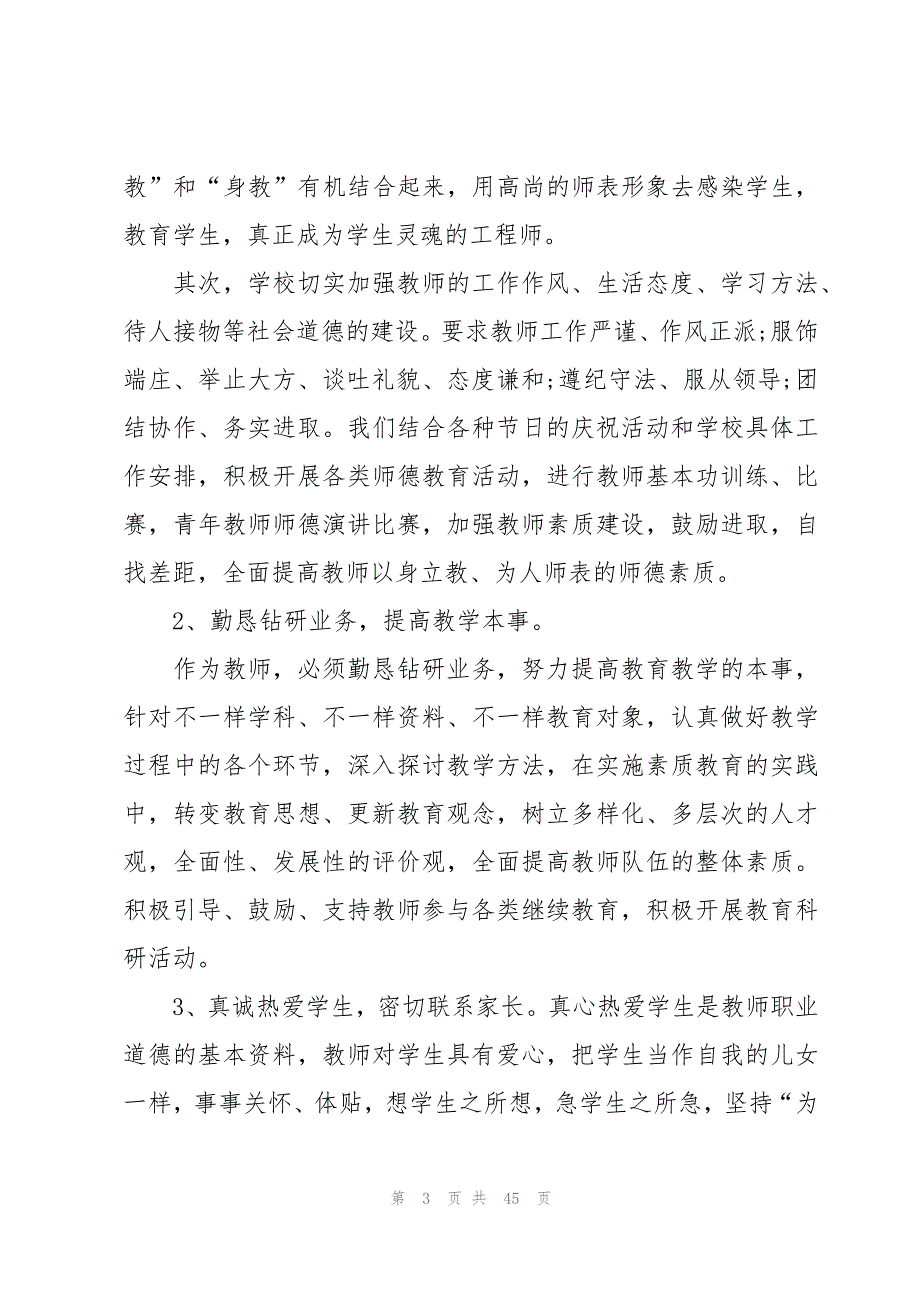 教”和“身教”有机结合起来，用高尚的师表形象去感染学生，
教育学生，真正成为学生灵魂的工程师。
其次，学校切实加强教师的工作作风、生活态度、学习方法、
待人接物等社会道德的建设。要求教师工作严谨、作风正派;服饰
端庄、举止大方、谈吐礼貌、态度谦和;遵纪守法、服从领导;团
结协作、务实进取。我们结合各种节日的庆祝活动和学校具体工
作安排，积极开展各类师德教育活动，进行教师基本功训练、比
赛，青年教师师德演讲比赛，加强教师素质建设，鼓励进取，自
找差距，全面提高教师以身立教、为人师表的师德素质。
2、勤恳钻研业务，提高教学本事。
作为教师，必须勤恳钻研业务，努力提高教育教学的本事，
针对不一样学科、不一样资料、不一样教育对象，认真做好教学
过程中的各个环节，深入探讨教学方法，在实施素质教育的实践
中，转变教育思想、更新教育观念，树立多样化、多层次的人才
观，全面性、发展性的评价观，全面提高教师队伍的整体素质。
积极引导、鼓励、支持教师参与各类继续教育，积极开展教育科
研活动。
3、真诚热爱学生，密切联系家长。真心热爱学生是教师职业
道德的基本资料，教师对学生具有爱心，把学生当作自我的儿女
一样，事事关怀、体贴，想学生之所想，急学生之所急，坚持“为
第 3 页 共 45 页